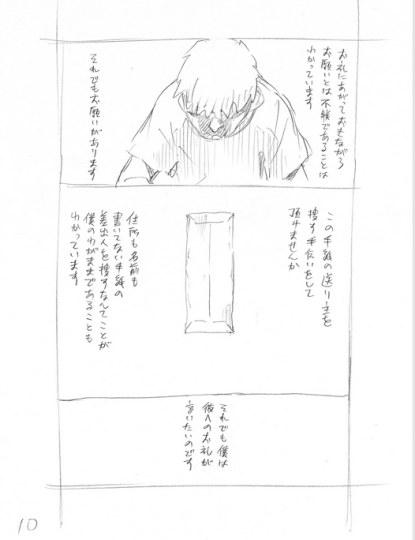 お礼にあがっておきながら
お願いとは不躾であることは
わかっています
それでもお願いがあります
この手紙の送り主を
捜す手伝いをして
頂けませんか
住所も名前も
書いてない手紙の
差出人を捜すなんてことが
僕のわがままであることも
わかっています
それでも僕は
彼へのお礼が
言いたいのです
10